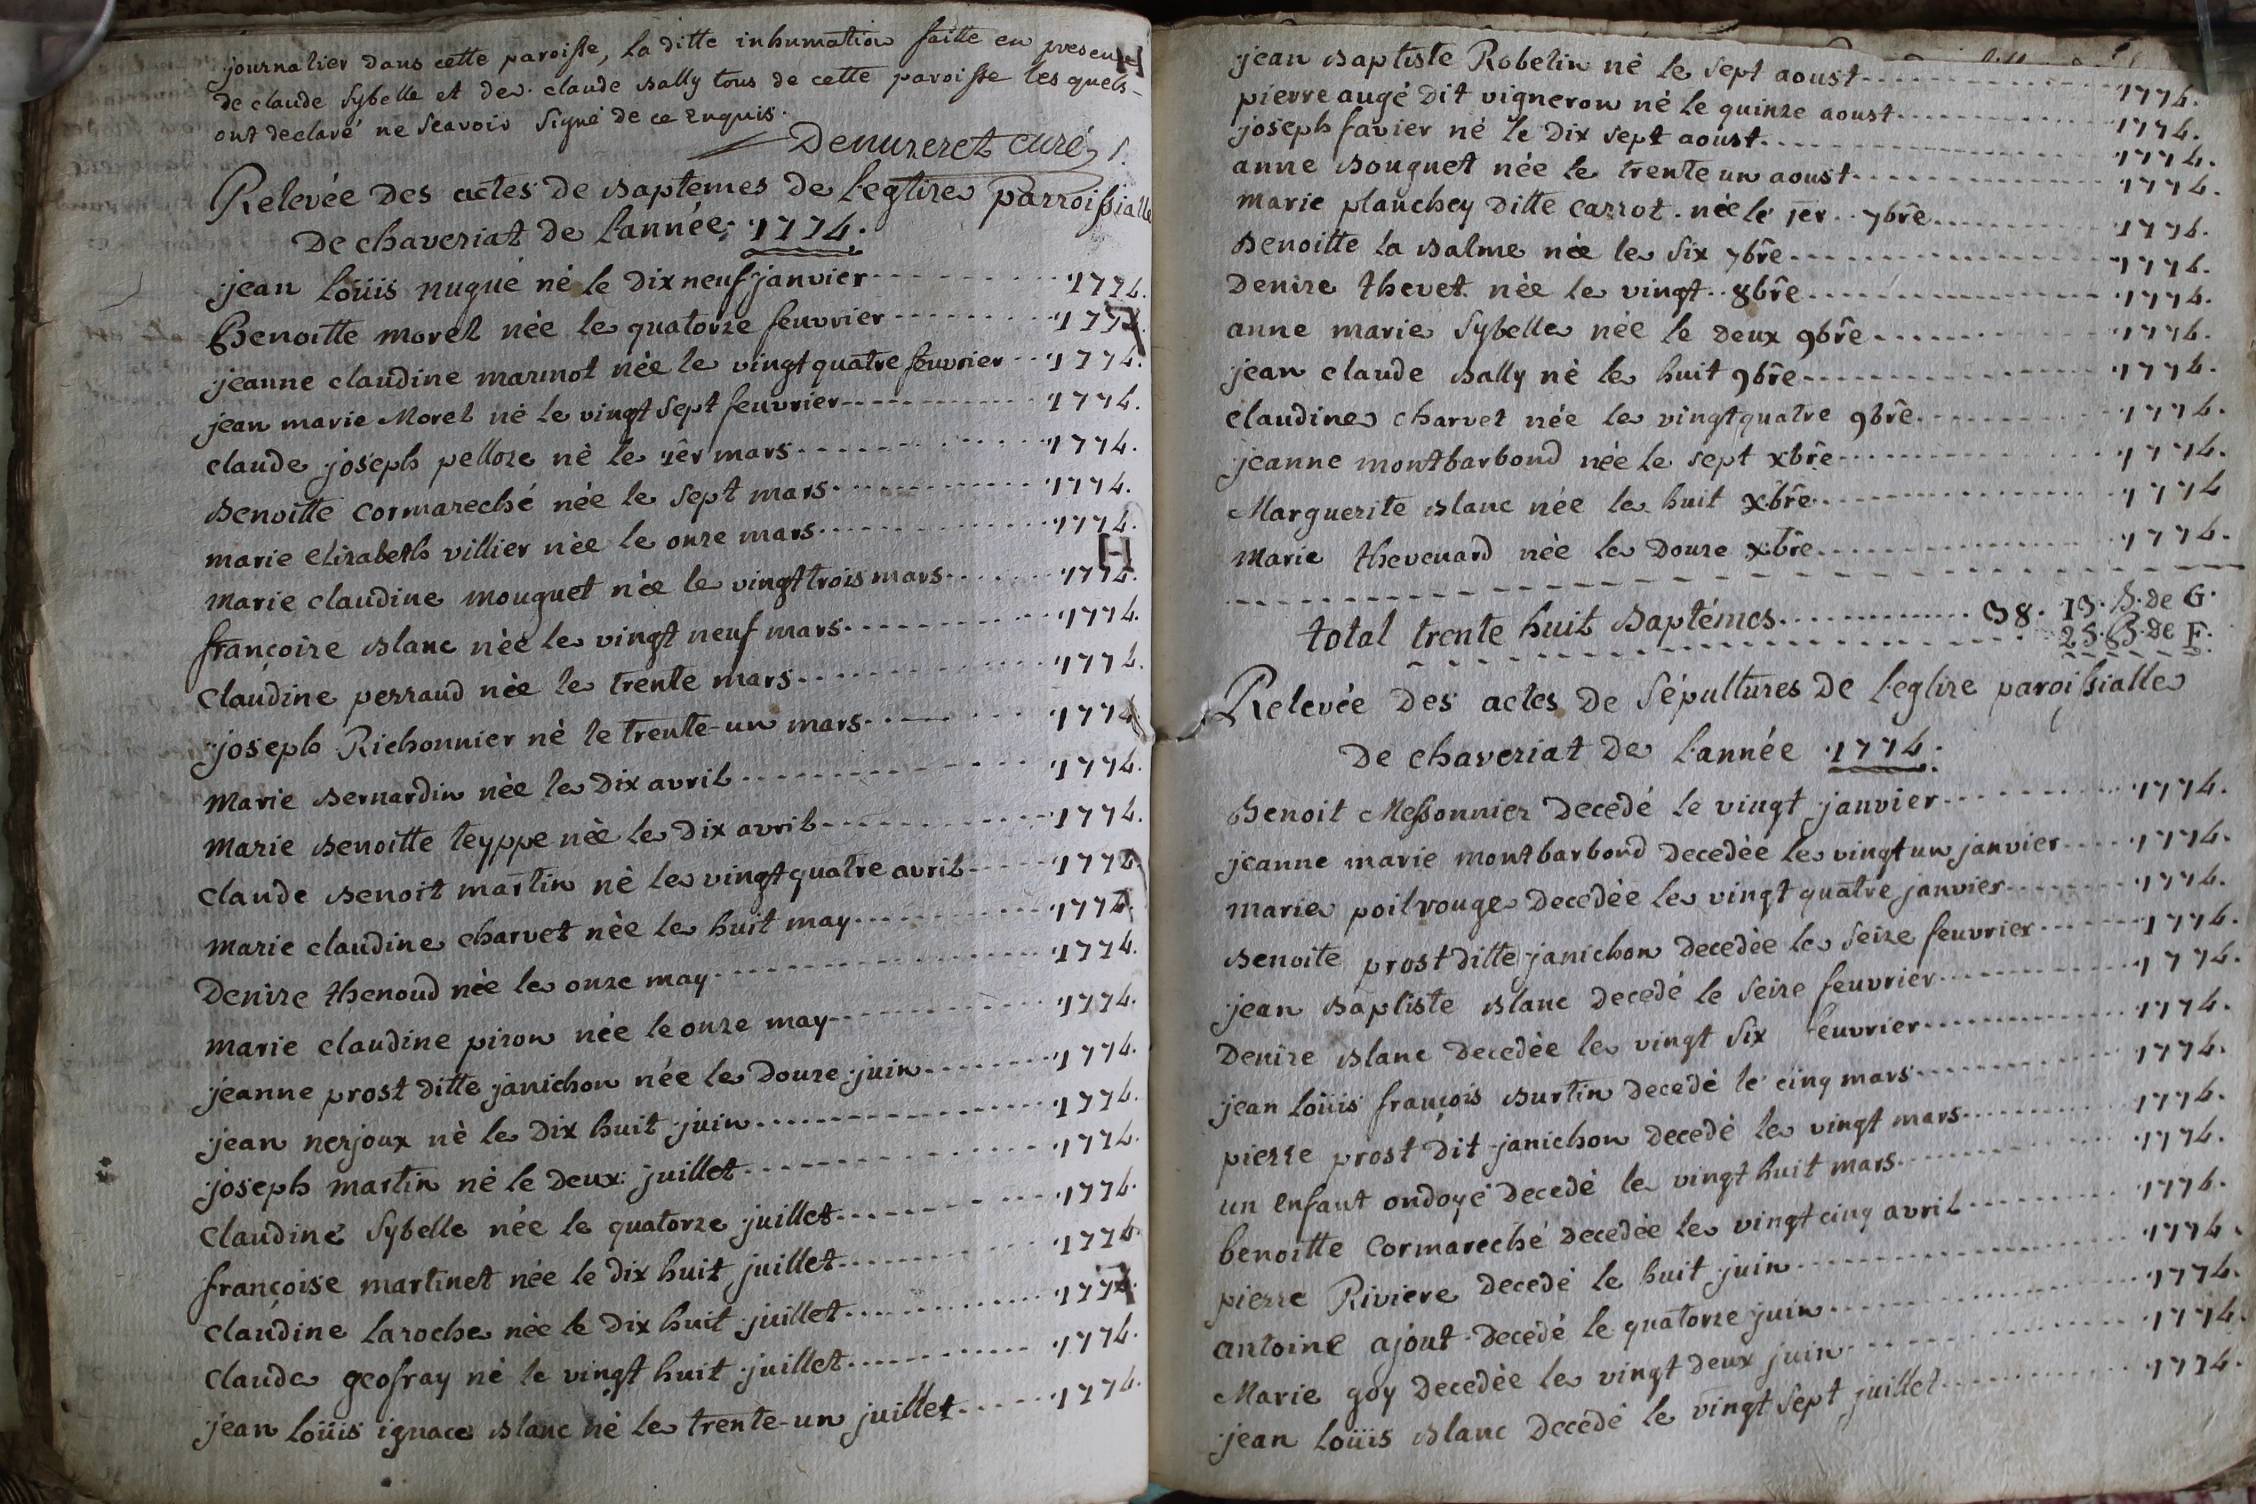 journalier dans cette paroisse, la ditte inhumation faitte en presence
de claude Sybelle et de claude Bally tous de cette paroisse les quels
ont declaré ne scavoir signé de ce enquis.
curé
Relevée Des actes De Baptemes De l'eglize parroissialle
De chaveriat De l'année 1774.
jean Loüis nugue né le Dix neuf janvier 1774.
Benoitte morel née le quatorze feuvrier 1774.
jeanne claudine marmot née le vingt quatre feuvrier 1774.
jean marie Morel né le vingt sept feuvrier 1774.
claude joseph pelloze né le 1er mars 1774.
Benoitte Cormareché née le sept mars 1774.
marie elizabeth villier née le onze mars 1774.
marie claudine mouguet née le vingt trois mars 1774.
françoize Blanc née le vingt neuf mars 1774.
Claudine perraud née le trente mars 1774.
joseph Richonnier né le trente-un mars 1774
Marie Bernardin née le Dix avril 1774.
Marie Benoitte teyppe née le Dix avril 1774.
Claude Benoit martin né le vingt quatre avril 1774
marie claudine charvet née le huit may 1774.
Denize thenoud née le onze may 1774.
marie claudine piron née le onze may 1774.
jeanne prost ditte janichon née le Douze juin 1774.
jean nerjoux né le Dix huit juin 1774.
joseph martin né le Deux juillet 1774.
Claudine Sybelle née le quatorze juillet 1774.
françoise martinet née le dix huit juillet 1774
claudine laroche née le Dix huit juillet 1774
claude geofray né le vingt huit juillet 1774.
jean Loüis ignace Blanc né le trente-un juillet 1774.
jean Baptiste Robelin né le sept aoust 1774.
pierre augé Dit vigneron né le quinze aoust 1774.
joseph favier né le Dix sept aoust 1774.
anne Bouguet née le trente un aoust 1774.
marie planchey Ditte carrot née le 1er 7bre 1774.
Benoitte la Balme née le six 7bre 1774.
Denize thevet née le vingt 8bre 1774.
anne marie Sybelle née le Deux 9bre 1774.
jean claude Bally né le huit 9bre 1774.
claudine charvet née le vingt quatre 9bre 1774.
jeanne montbarbond née le sept xbre 1774.
Marguerite Blanc née le huit xbre 1774
Marie thevenard née le Douze xbre 1774.
total trente huit Baptémes 38. 13. B. de G.
25. B. de F.
Relevée Des actes De Sépultures De l'eglize paroissialle
De chaveriat De l'année 1774.
Benoit Messonnier Decedé le vingt janvier 1774.
jeanne marie montbarbond Decedée le vingt un janvier 1774.
marie poil rouge Decedée le vingt quatre janvier 1774.
Benoite prost ditte janichon Decedée le seize feuvrier 1774.
jean Baptiste Blanc Decedé le seize feuvrier 1774.
Denize Blanc Decedée le vingt six feuvrier 1774.
jean Loüis françois Burtin Decedé le cinq mars 1774.
pierre prost Dit janichon Decedé le vingt mars 1774.
un enfant ondoyé Decedé le vingt huit mars 1774.
benoitte Cormareché Decedée le vingt cinq avril 1774.
pierre Riviere Decedé le huit juin 1774.
antoine ajout Decedé le quatorze juin 1774.
Marie goy Decedée le vingt deux juin 1774.
jean Loüis Blanc Decedé le vingt sept juillet 1774.